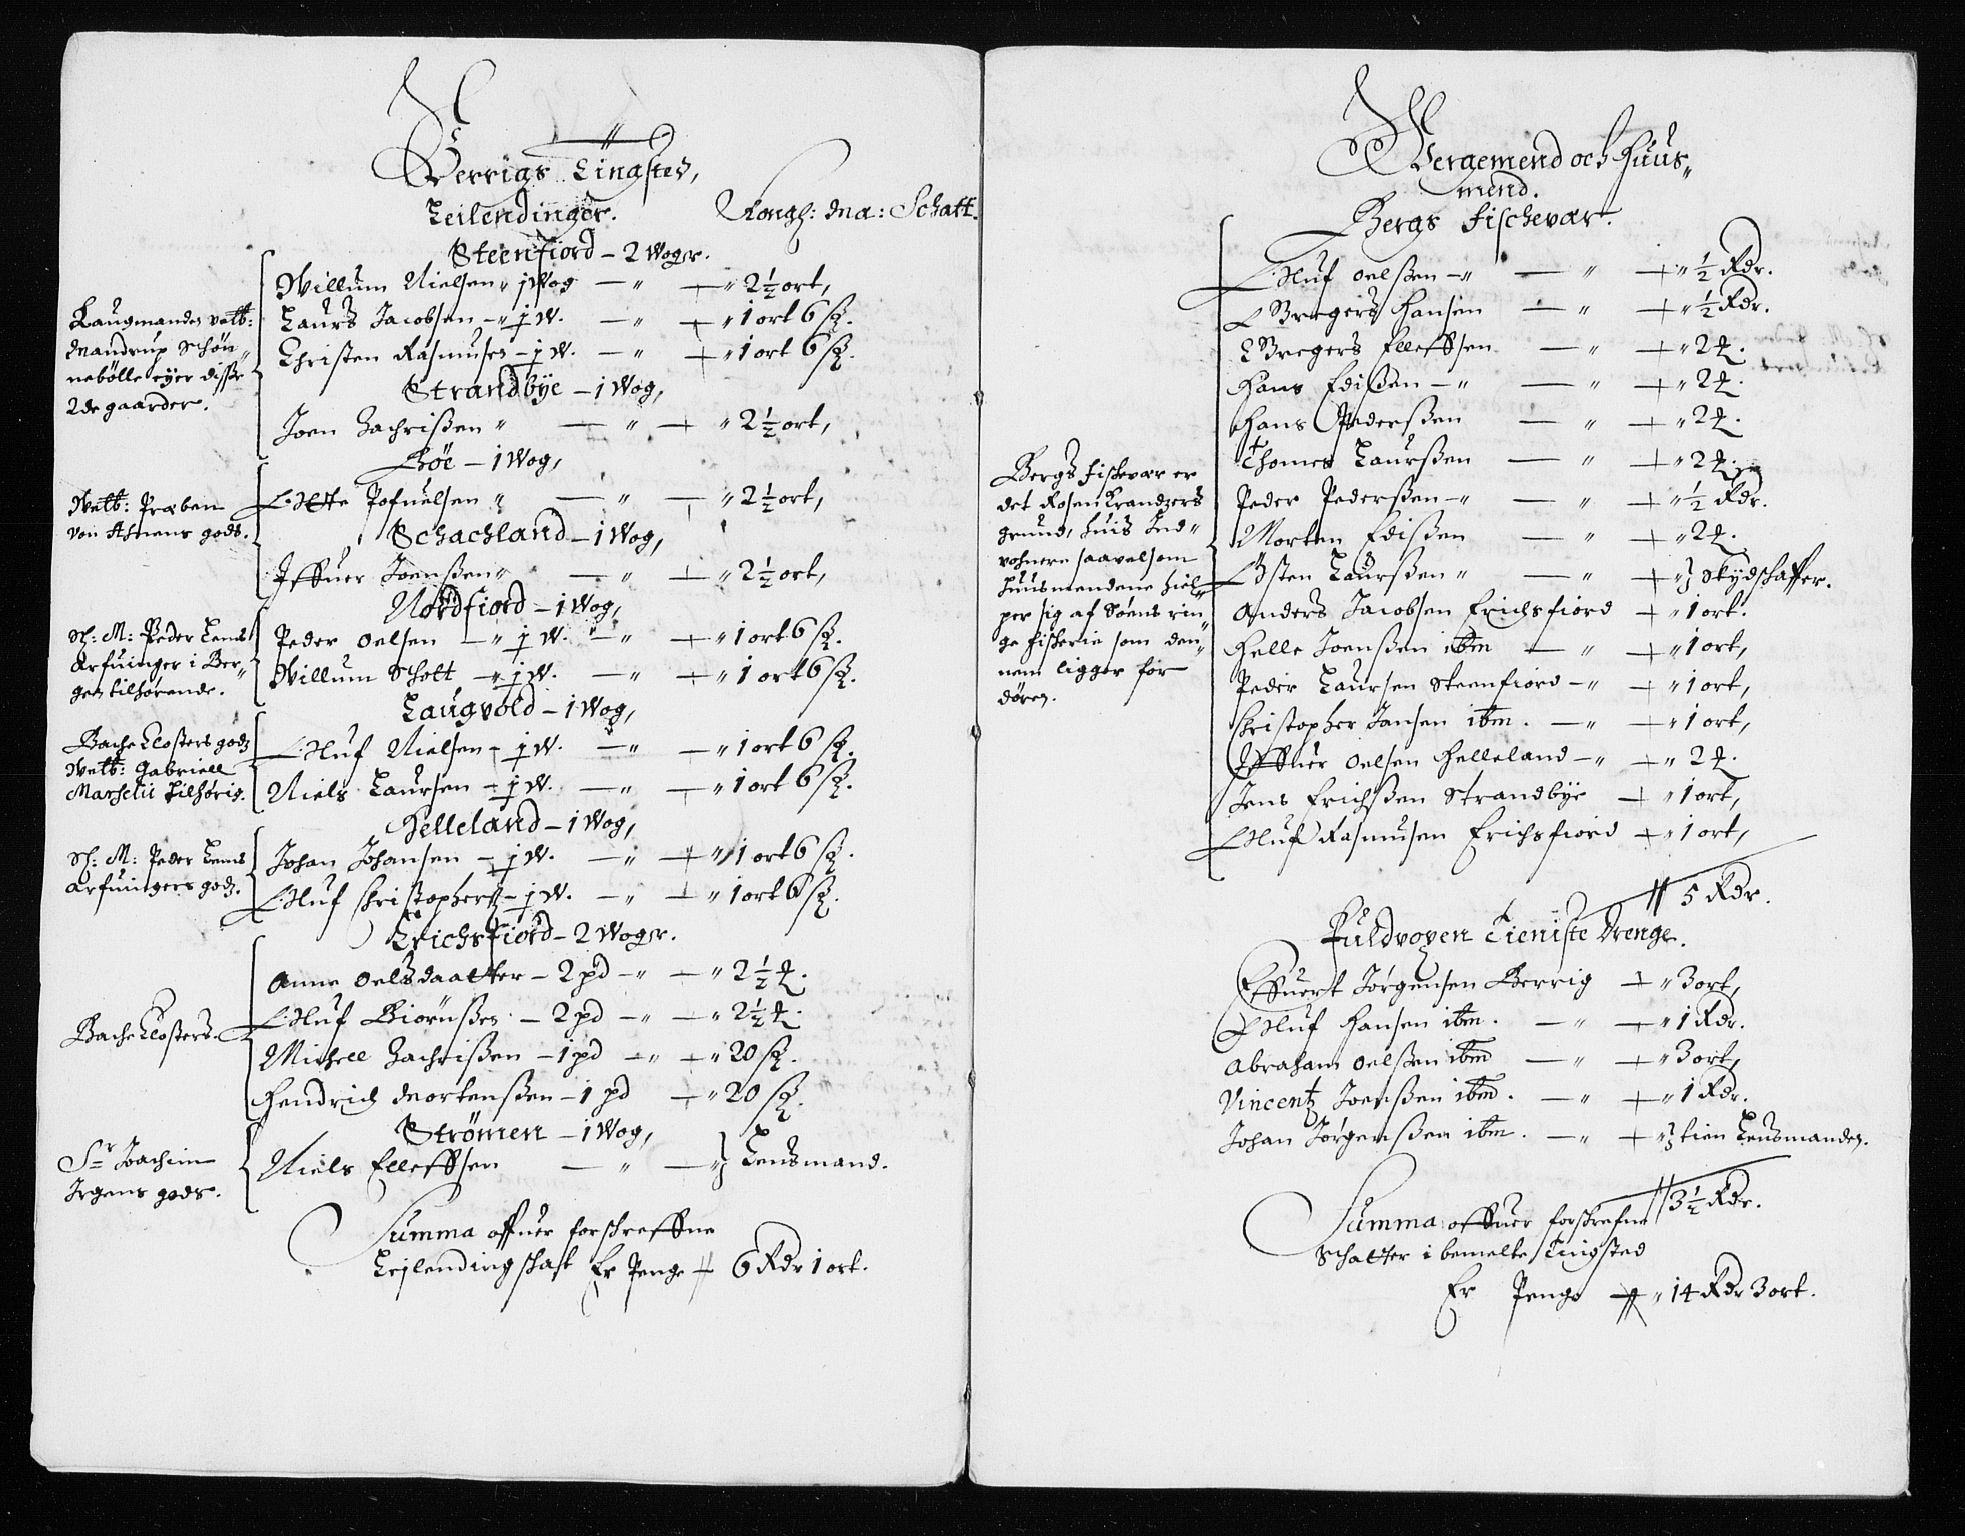 Berrigs Tingsted,
Leilendinger. Kongl: Ma: Schatt.
Steenfiord – 2 Woger.
Laugmanden velb:
Mandrup Schøn„
nebølle eyer disse
2de gaarder.
Willum Nielsen „ 1 Wog – „ „ 2½ ort,
Laurs Jacobsen – „ ½ W. – „ „ 1 ort 6 ß.
Christen Rasmusen – ½ W. – „ „ 1 ort 6 ß.
Strandbÿe – 1 Wog,
Joen Zachrißen „ – „ „ 2½ ort,
Böe – 1 Wog,
Welb: Præben
von Ahnens gods.
Otte Pofuelsen „ – „ – „ 2½ ort,
Schachland – 1 Wog,
Iffuer Joenßen „ – „ „ 2½ ort,
Nordfiord – 1 Wog,
Sl: M: Peder Lems
Arfuinger i Ber„
gen tilhørende.
Peder Oelsen – „ ½ W. – „ „ 1 ort 6 ß.
Willum Schott – „ ½ W. – „ „ 1 ort 6 ß.
Laugvold – 1 Wog,
Bache Closters godz
Welb: Gabriell
Marselii tilhørig.
Oluf Nielsen – ½ W. – „ – „ 1 ort 6 ß.
Niels Laursen – ½ W. – „ „ 1 ort 6 ß.
Helleland – 1 Wog,
Sl: M: Peder Lems
Arfuingers godz.
Johan Johansen – ½ W. – „ „ 1 ort 6 ß.
Oluf Christophers – ½ W. – „ „ 1 ort 6 ß.
Erichsfiord – 2 Woger.
Bache Closters.
Anne Oelsdaatter – 2 pd – „ – „ 2½ ꝉ.
Oluf Biörnßen – 2 pd – „ – „ 2½ ꝉ.
Michell Zachrißen – 1 pd – „ „ 20 ß.
Hendrich Mortenßen – 1 pd „ 20 ß.
Strömen – 1 Wog,
Sr Joachim
Irgens gods.
Niels Elleffsen – „ – „ } Lensmand.
Summa offuer forschreffne
Leylending schat Er Penge 6 Rdr 1 ort.
Børgemend och Huus„
mend.
Bergs fischevær.
Bergs fiskevær er
det Rosenkrandzers
grund, huis Ind„
vohnere saavelsom
huusmendene hiel„
per sig af Søens rin„
ge fiskerie som den„
nem ligger før
døren.
Oluf Oelßen – „ – „ „ ½ Rdr.
Bregers Hansen – „ „ ½ Rdr.
Bregers Elleffsen – „ „ 2 ꝉ.
Hans Edißen – „ – „ „ 2 ꝉ.
Hans Pederßen – „ „ 2 ꝉ.
Thomes Laurßen – „ „ 2 ꝉ.
Peder Pederßen – „ – „ „ ½ Rdr.
Morten Edißen – „ „ 2 ꝉ.
Østen Laurßen „ – „ „ } Skydschaffer.
Anders Jacobsen Erichsfiord „ 1 ort.
Helle Joenßen ibm – „ „ 1 ort,
Peder Laursen Steenfiord – „ „ 1 ort,
Christopher Jansen ibm. – „ „ 1 ort,
Iffuer Oelsen Helleland – „ „ 2 ꝉ.
Jens Erichßen Strandbÿe „ 1 ort,
Oluf Rasmusen Erichsfiord „ 1 ort,
5 Rdr.
Fuldvoxen Tieniste Drenge.
Effuert Jørgensen Berrig „ 3 ort,
Oluf Hansen ibm. – „ „ 1 Rdr.
Abraham Oelßen ibm – „ „ 3 ort,
Vincentz Joenßen ibm. – „ „ 1 Rdr.
Johan Jörgenßen ibm. – „ „ } tien Lensmanden.
3½ Rdr.
Summa offuer forskrefne
Schatter i bemelte Tingsted
Er Penge „ 14 Rdr 3 ort.